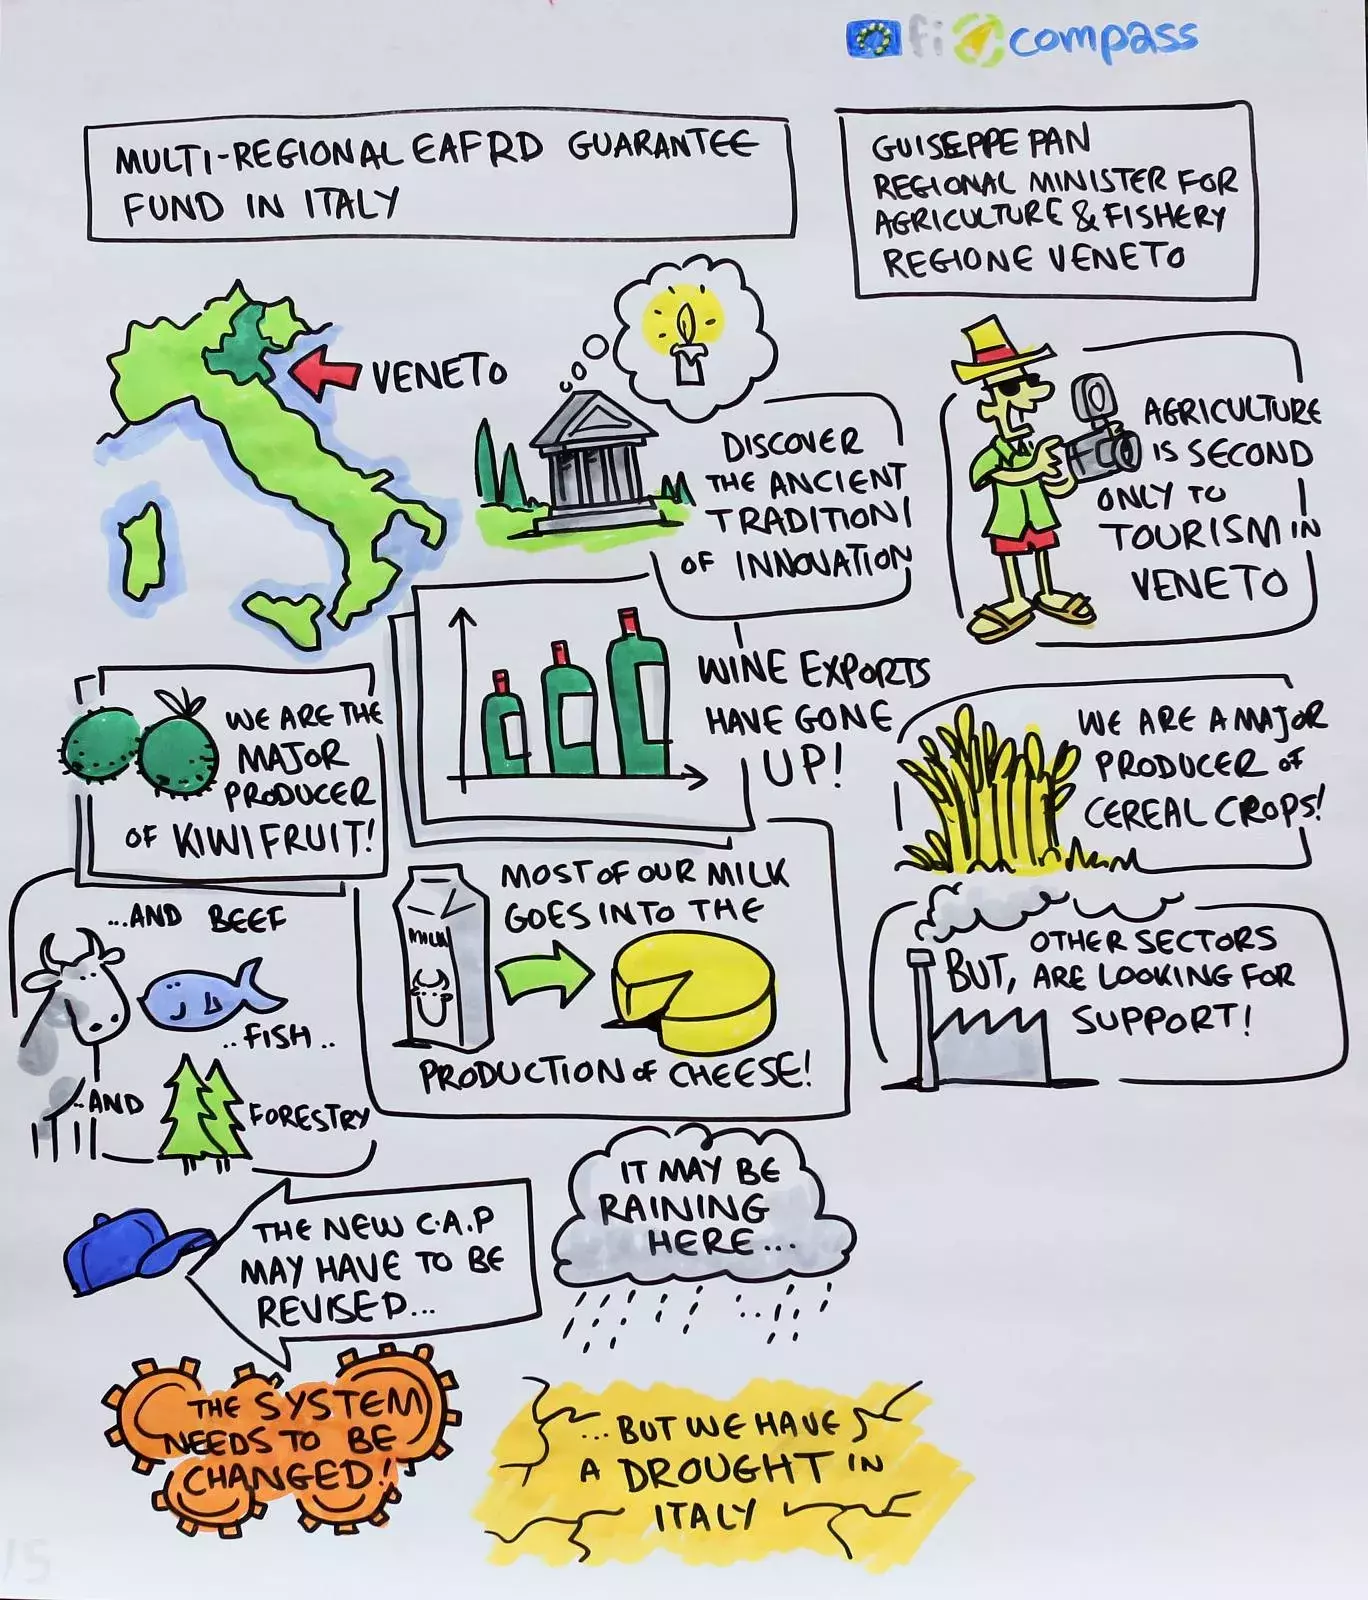 fi compass
MULTI-REGIONAL EAFRD GUARANTEE
FUND IN ITALY
GUISEPPE PAN
REGIONAL MINISTER FOR
AGRICULTURE & FISHERY
REGIONE VENETO
VENETO
DISCOVER
THE ANCIENT
TRADITION
OF INNOVATION
AGRICULTURE
IS SECOND
ONLY TO
TOURISM IN
VENETO
WE ARE THE
MAJOR
PRODUCER
OF KIWI FRUIT!
WINE EXPORTS
HAVE GONE
UP!
WE ARE A MAJOR
PRODUCER OF
CEREAL CROPS!
...AND BEEF
..FISH..
..AND
FORESTRY
MOST OF OUR MILK
GOES INTO THE
MILK
PRODUCTION OF CHEESE!
OTHER SECTORS
BUT, ARE LOOKING FOR
SUPPORT!
THE NEW C.A.P
MAY HAVE TO BE
REVISED...
IT MAY BE
RAINING
HERE...
THE SYSTEM
NEEDS TO BE
CHANGED!
...BUT WE HAVE
A DROUGHT IN
ITALY
15